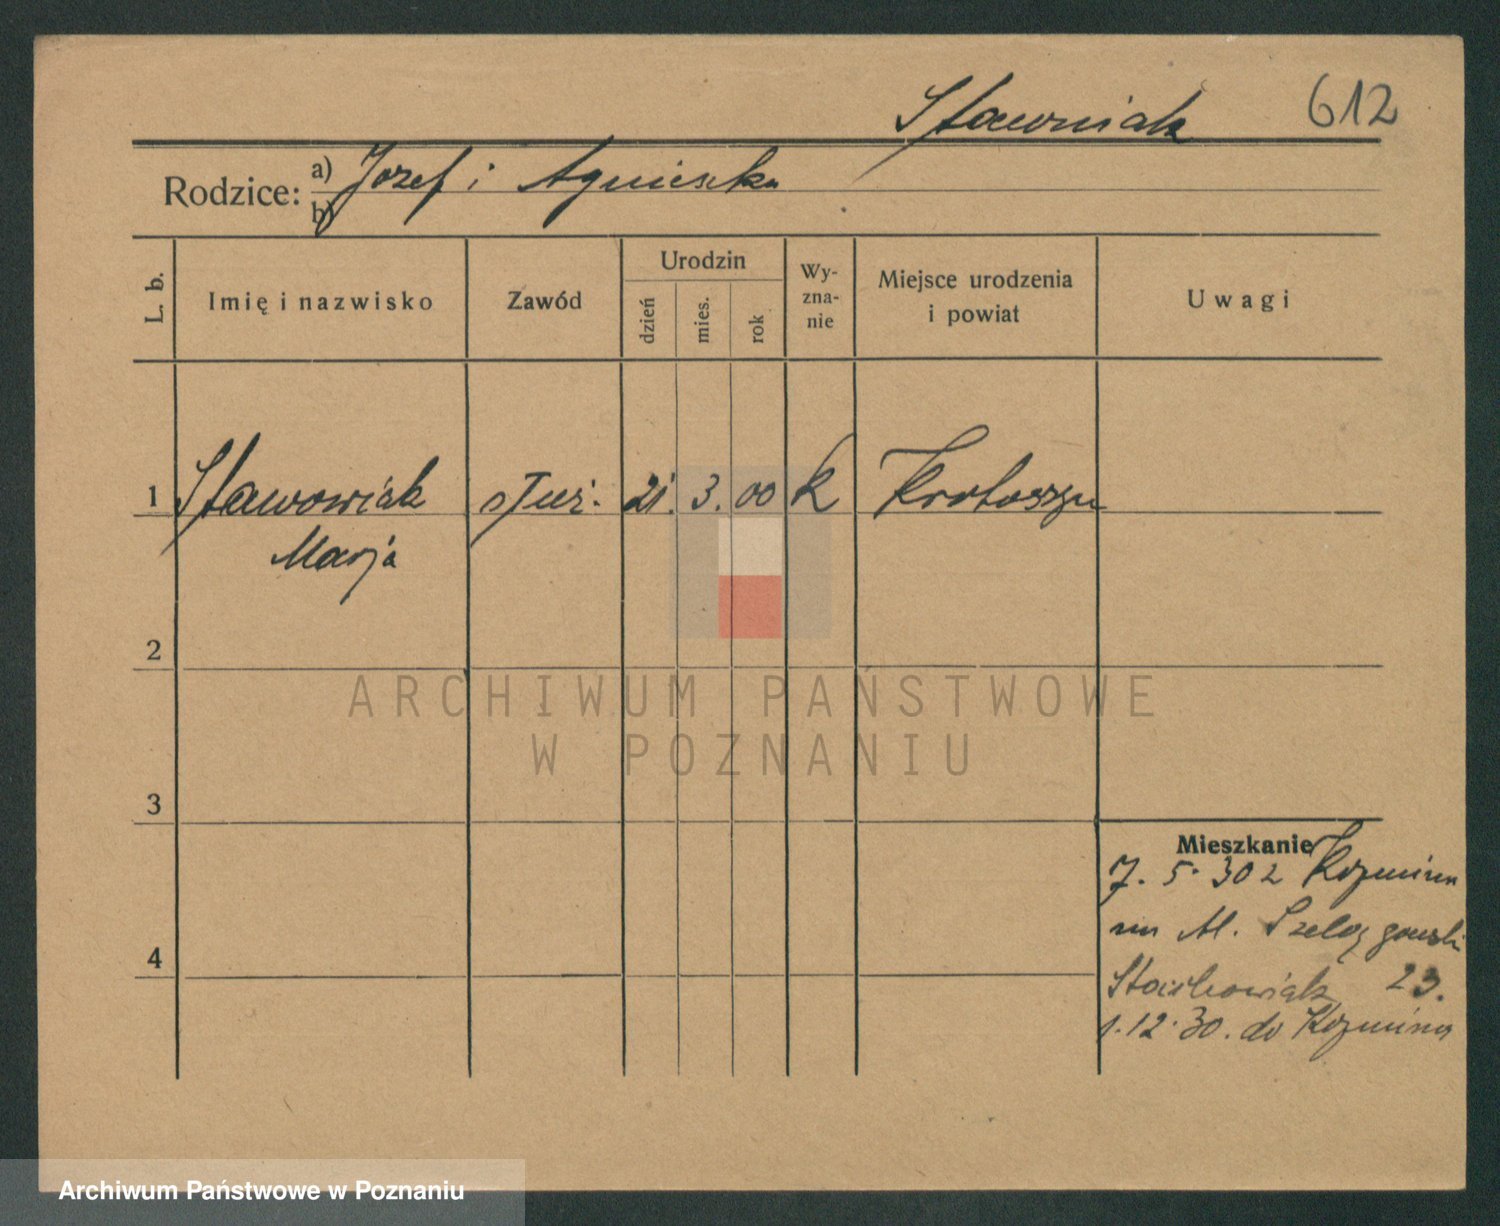 Stawniak 612
Rodzice: a) Jozef i Agnieszka
b)
L. b.
Imię i nazwisko
Zawód
Urodzin
dzień
mies.
rok
Wy-
zna-
nie
Miejsce urodzenia
i powiat
Uwagi
1 Stawowiak służ. 21. 3. 00 k Krotoszyn
Marja
2
3
4
Mieszkanie
7. 5. 30 z Kozmina
M. Szelągowski
Stachowiak 23.
1.12.30. do Kozmina
ARCHIWUM PAŃSTWOWE
W POZNANIU
Archiwum Państwowe w Poznaniu